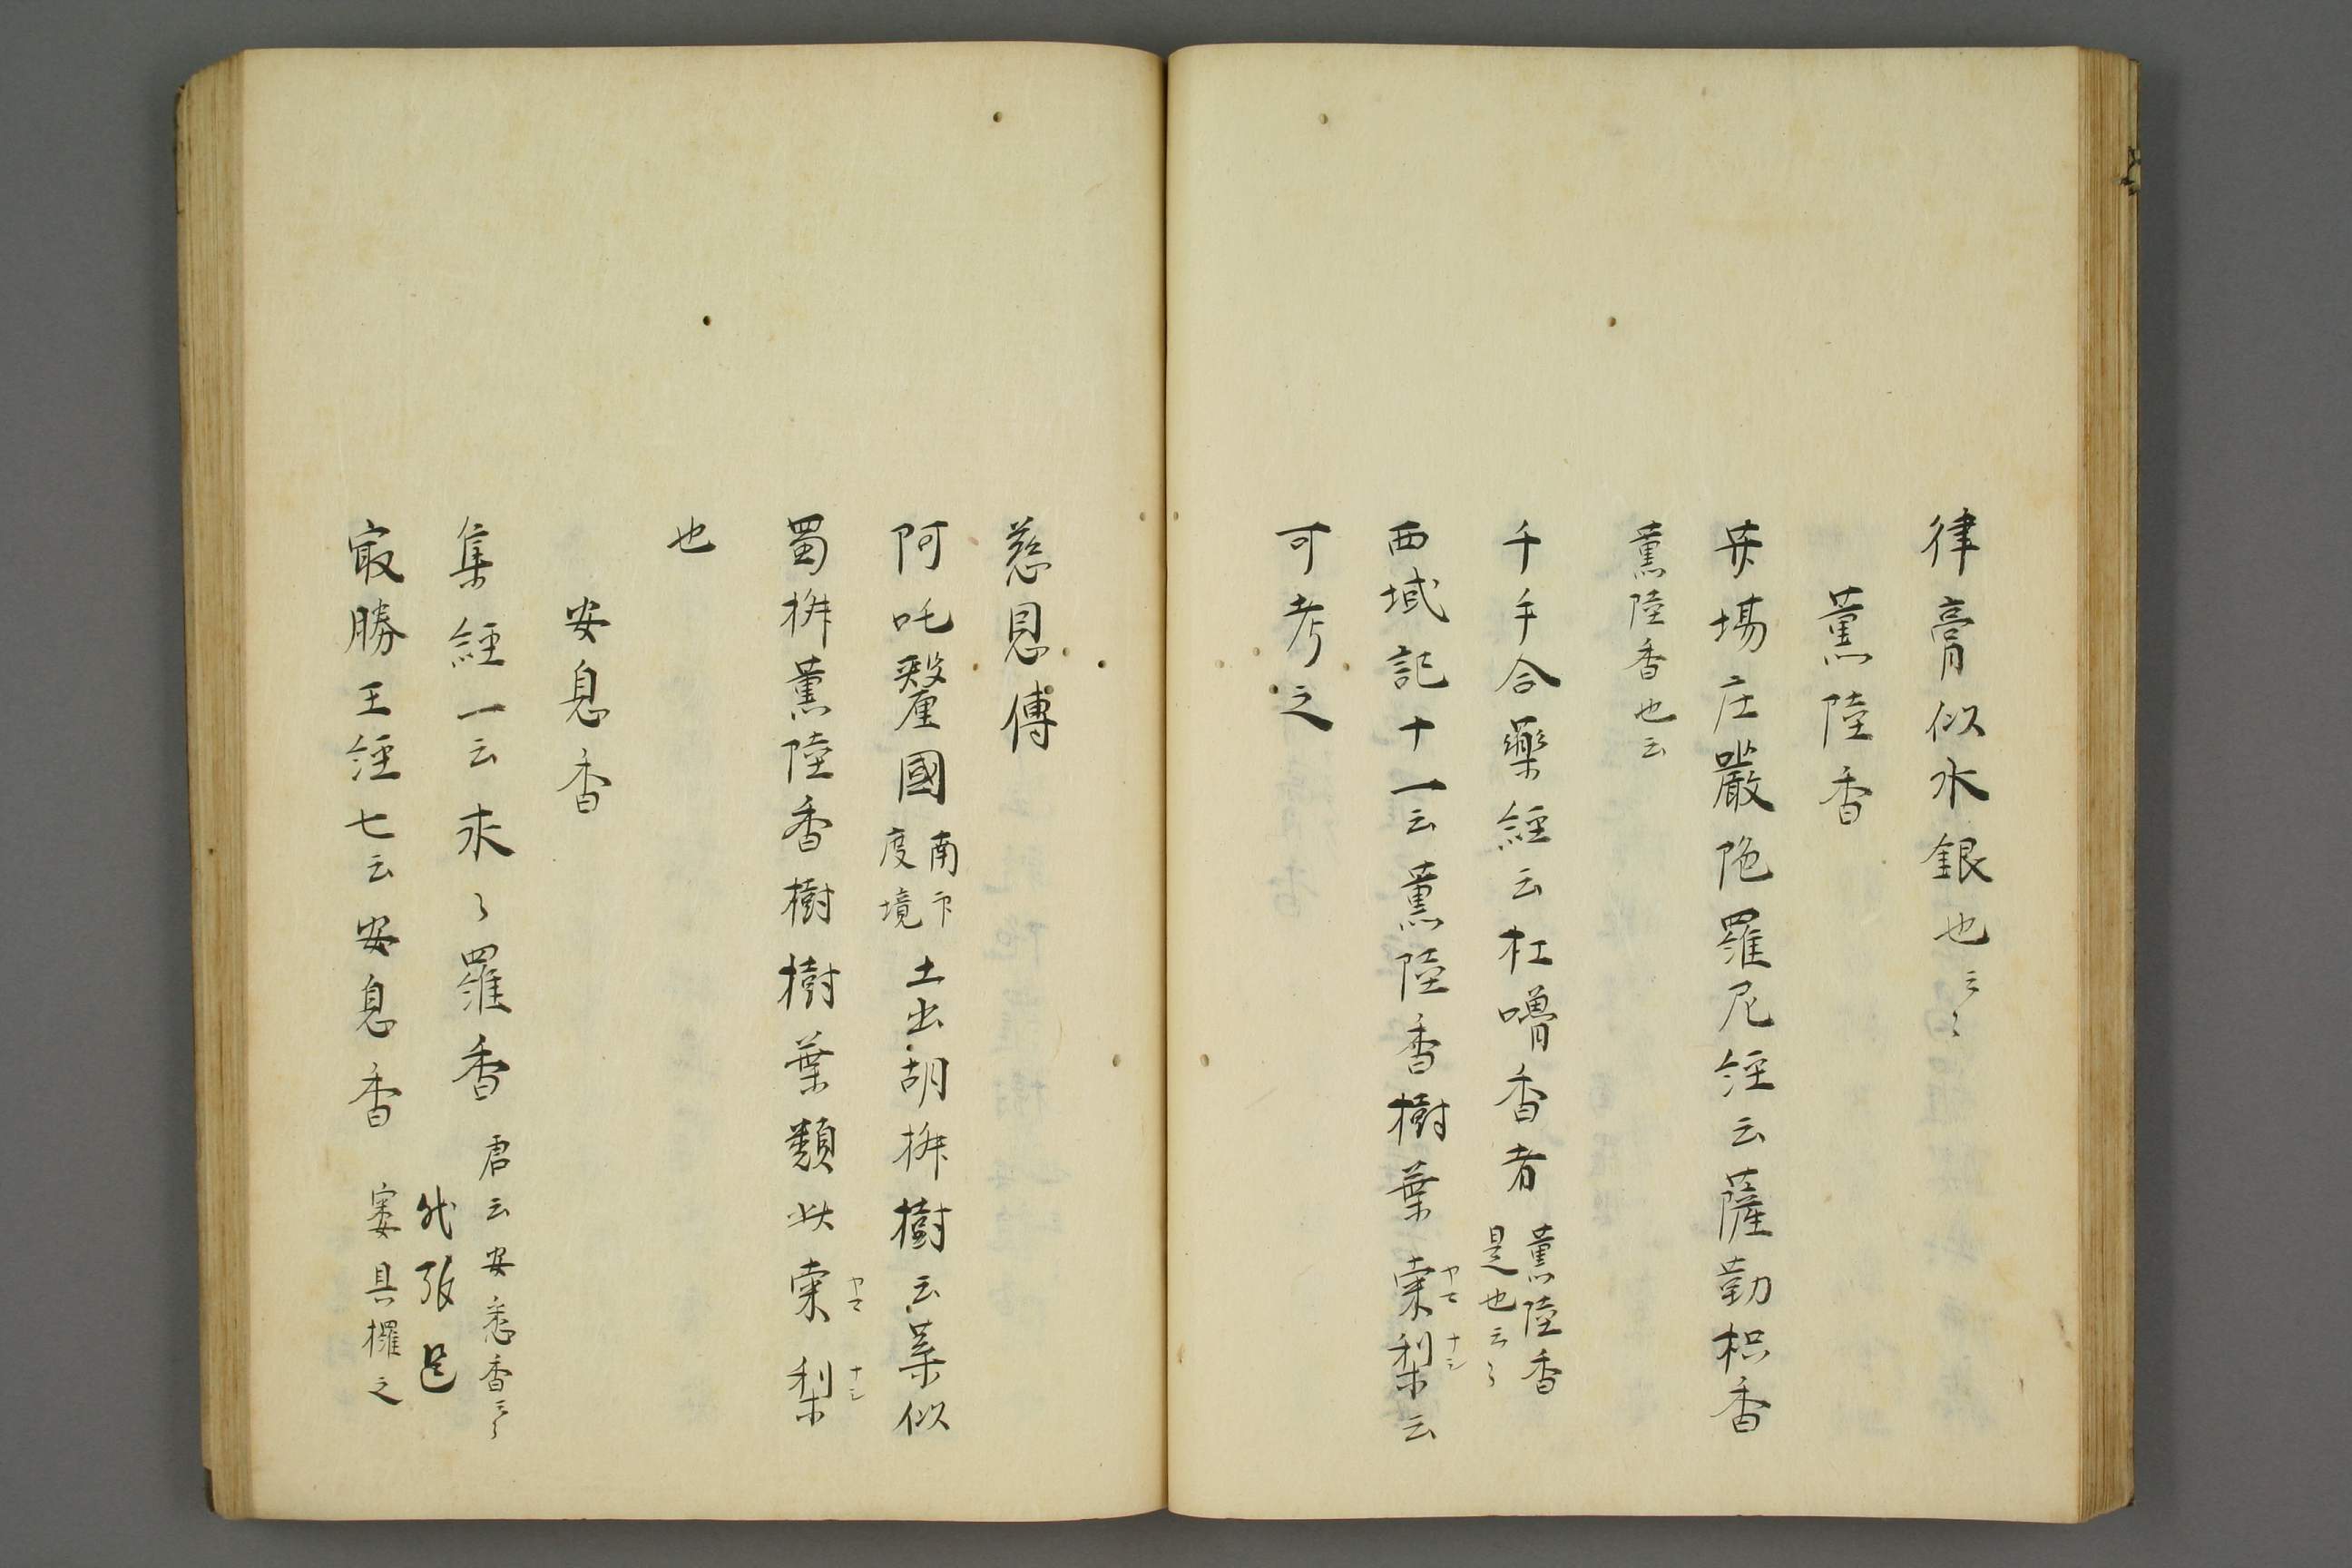 律膏似水銀也云〻
薫陸香
𦬇場庄嚴陁羅尼經云薩勒枳香
薫陸香也云
千手合藥經云杜嚕香者 薫陸香
是也云〻
西域記十一云薫陸香樹葉棠梨云
ヤマ ナシ
可考之
慈恩傳
阿吒釐國 南印
度境 土出胡椒樹云葉似
蜀椒薫陸香樹樹葉類此棠梨
ヤマ ナシ
也
安息香
集經一云求〻羅香 唐云安悉香云〻
㝡勝王經七云安息香 窶具攞